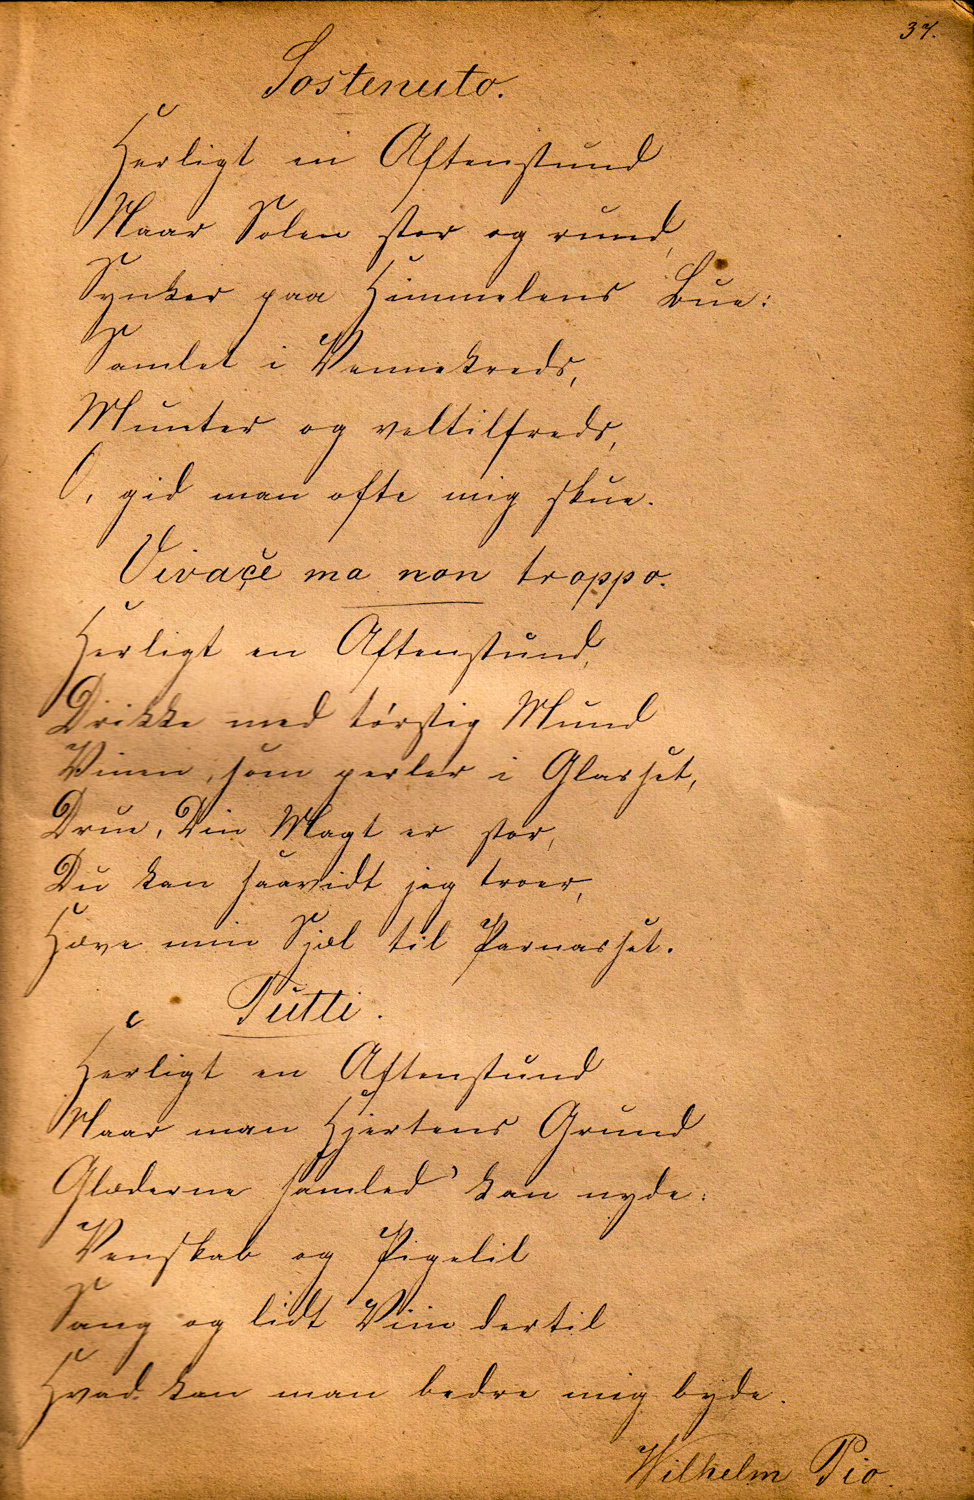 37.
Sostenuto.
Herligt en Aftenstund
Naar Solen stor og rund,
Synker paa Himmelens Bue:
Samlet i Vennekreds,
Munter og veltilfreds,
O, gid man ofte mig skue.
Vivace ma non troppo.
Herligt en Aftenstund,
Drikke med tørstig Mund
Vinen, som perler i Glasset,
Drue, Din Magt er stor,
Du kan saavidt jeg troer,
Hæve min Sjæl til Parnasset.
Tutti.
Herligt en Aftenstund
Naar man Hjertens Grund
Glæderne samled' kan nyde:
Venskab og Pigelil
Sang og lidt Viin dertil
Hvad kan man bedre mig byde.
Wilhelm Pio.